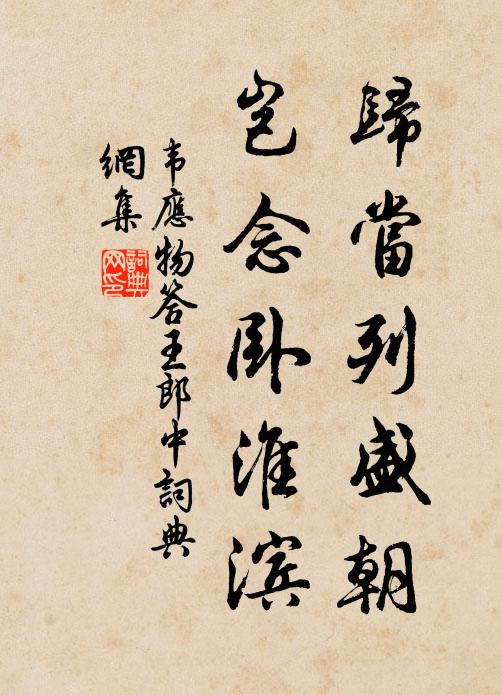 歸當列盛朝
豈念卧淮滨
韦應物答王郎中詞典
網集
詞典
网印